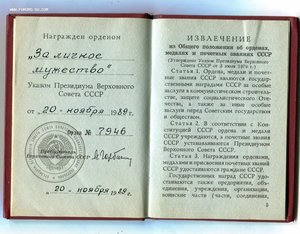 Награждён орденом
„За личное
мужество"
Указом Президиума Верховного
Совета СССР
от „20„ ноября 1989 г.
Орден № 7946
Президиума
Верховного Совета СССР
„20„ ноября 1989 г.
ИЗВЛЕЧЕНИЕ
из Общего положения об орденах,
медалях и почетных званиях СССР
(Утверждено Указом Президиума Верховного
Совета СССР от 3 июля 1979 г.)
Статья 1. Ордена, медали и почетные
звания СССР являются государственными
наградами СССР за особые
заслуги в коммунистическом строительстве,
защите социалистического Отечества,
а также за иные особые
заслуги перед Советским государством
и обществом.
Статья 2. В соответствии с Конституцией
СССР ордена и медали
СССР учреждаются, а почетные звания
СССР устанавливаются Президиумом
Верховного Совета СССР.
Статья 3. Награждения орденами,
медалями и присвоения почетных званий
СССР удостаиваются граждане СССР.
Государственных наград СССР удостаиваются
также предприятия, объединения,
учреждения, организации,
воинские части (корабли), соединения,